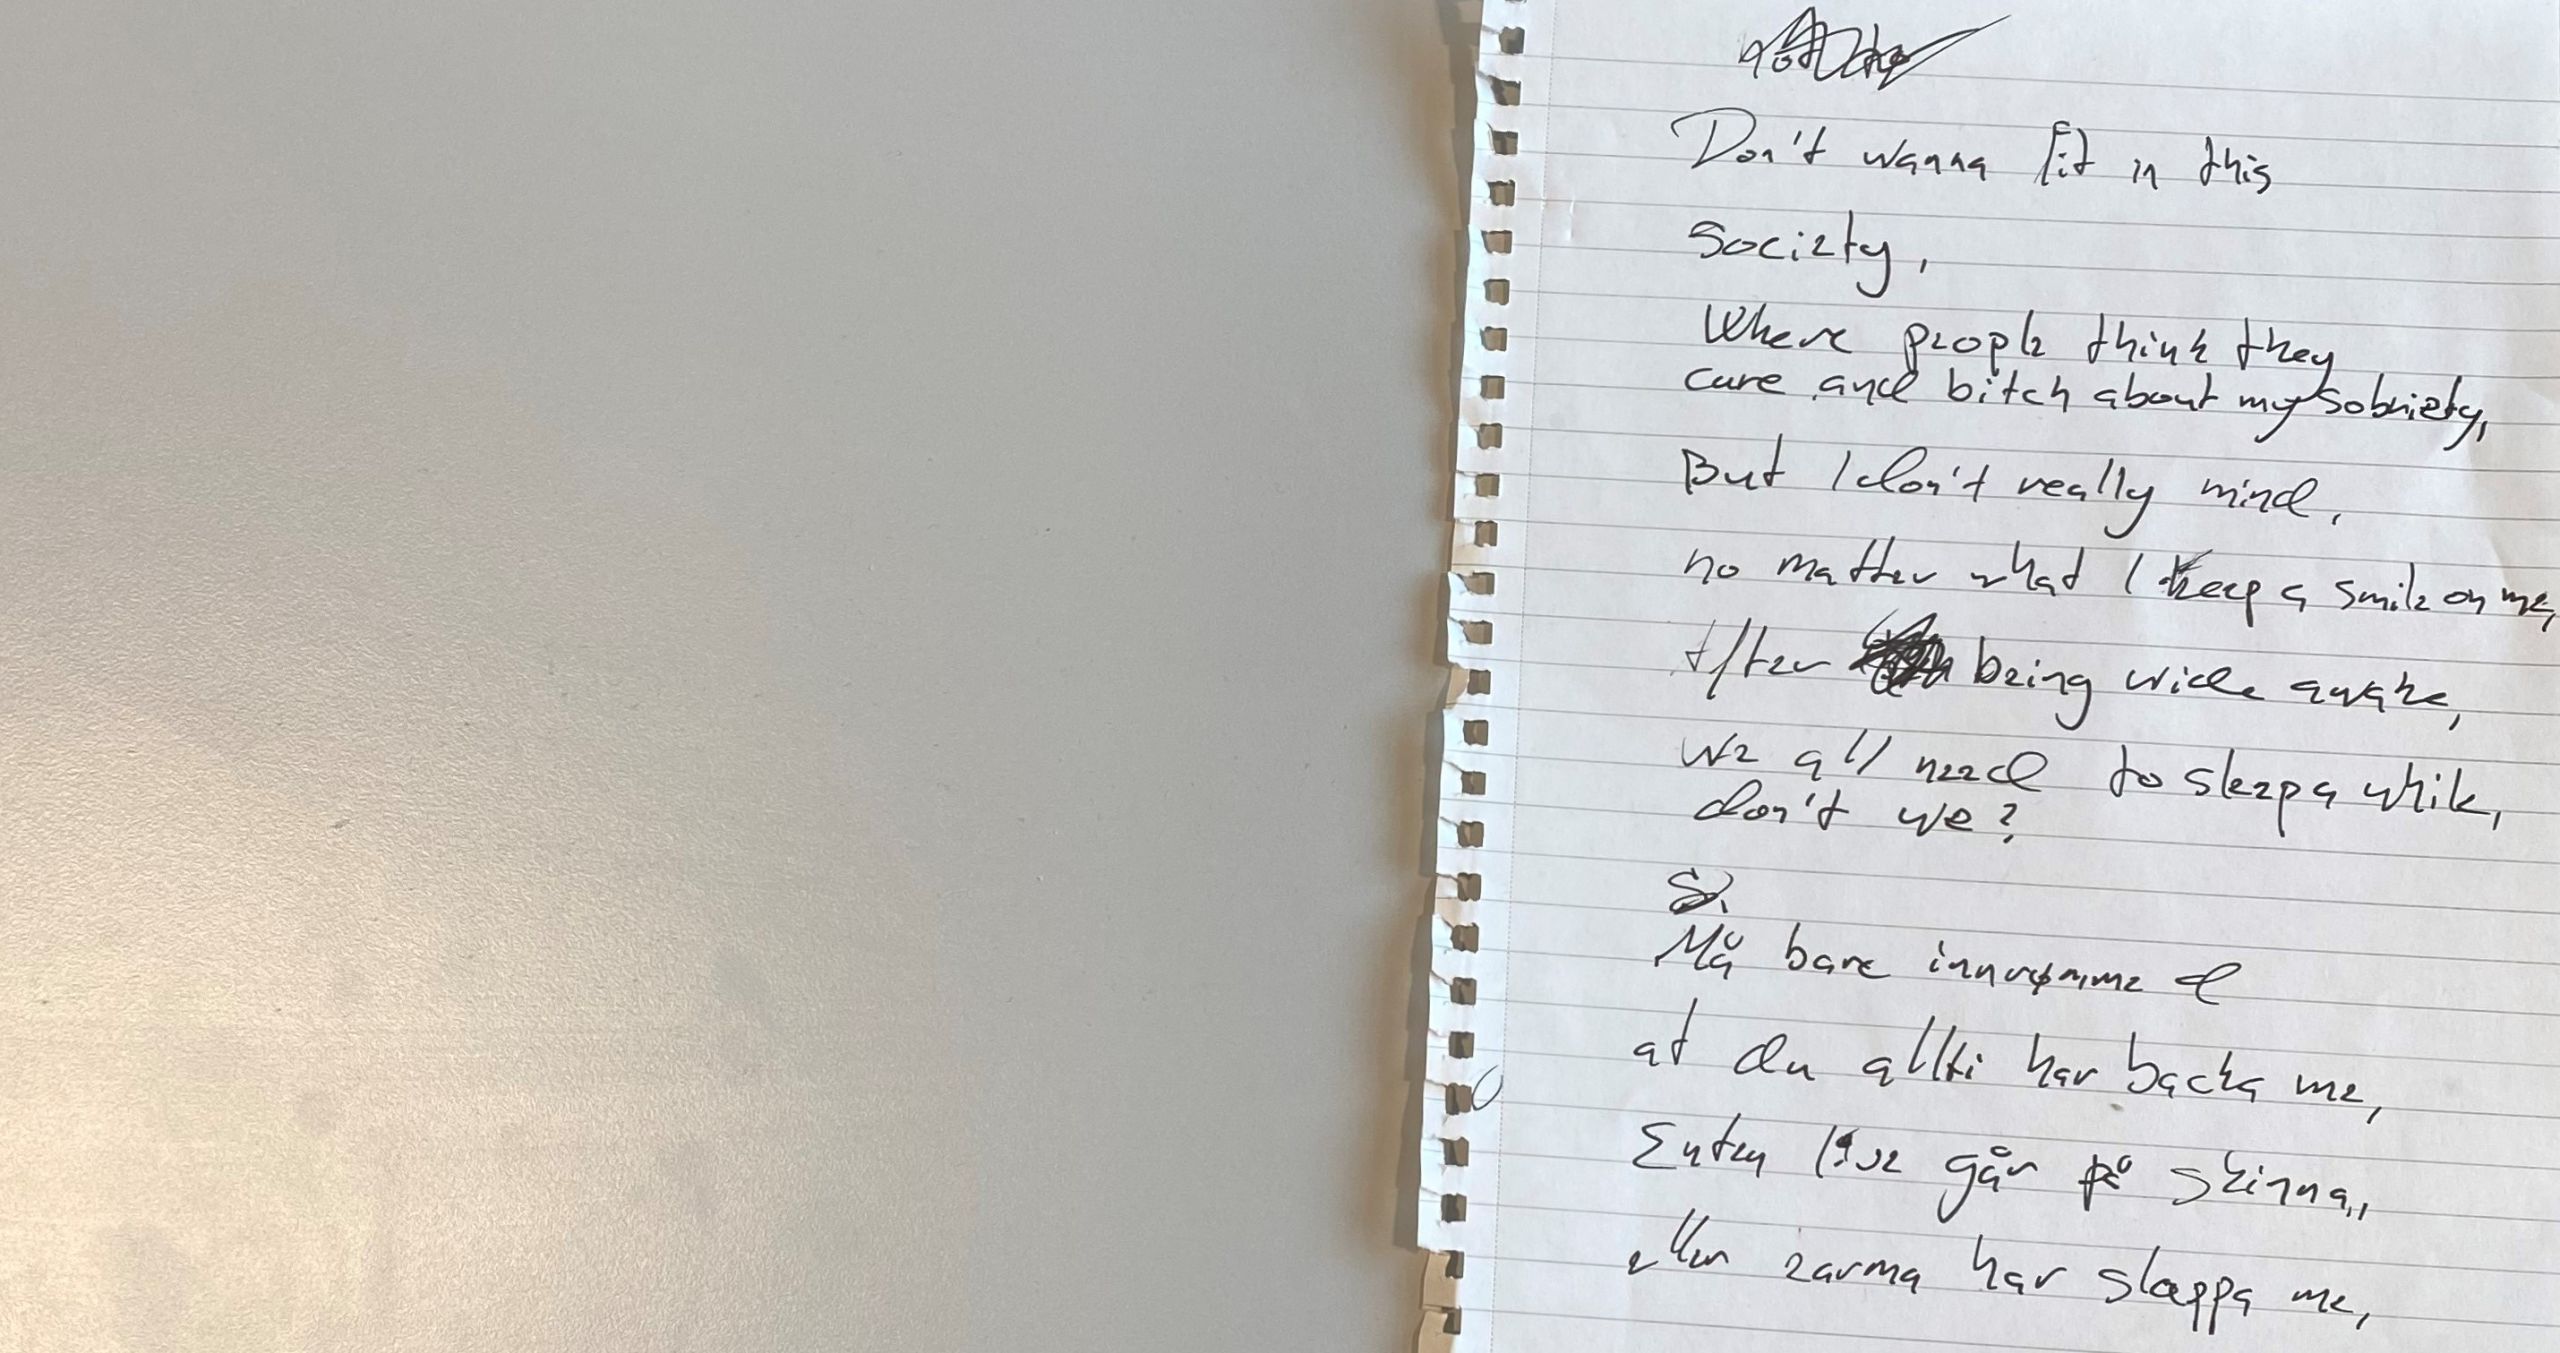 Don't wanna fit in this
society,
Where people think they
care and bitch about my sobriety,
But I don't really mind,
no matter what I keep a smile on me,
After being wide awake,
we all need to sleep a while,
don't we?
Må bare innrømme d
at du allti har backa me,
Enten live går på skinna,,
eller zarma har slæppa me,